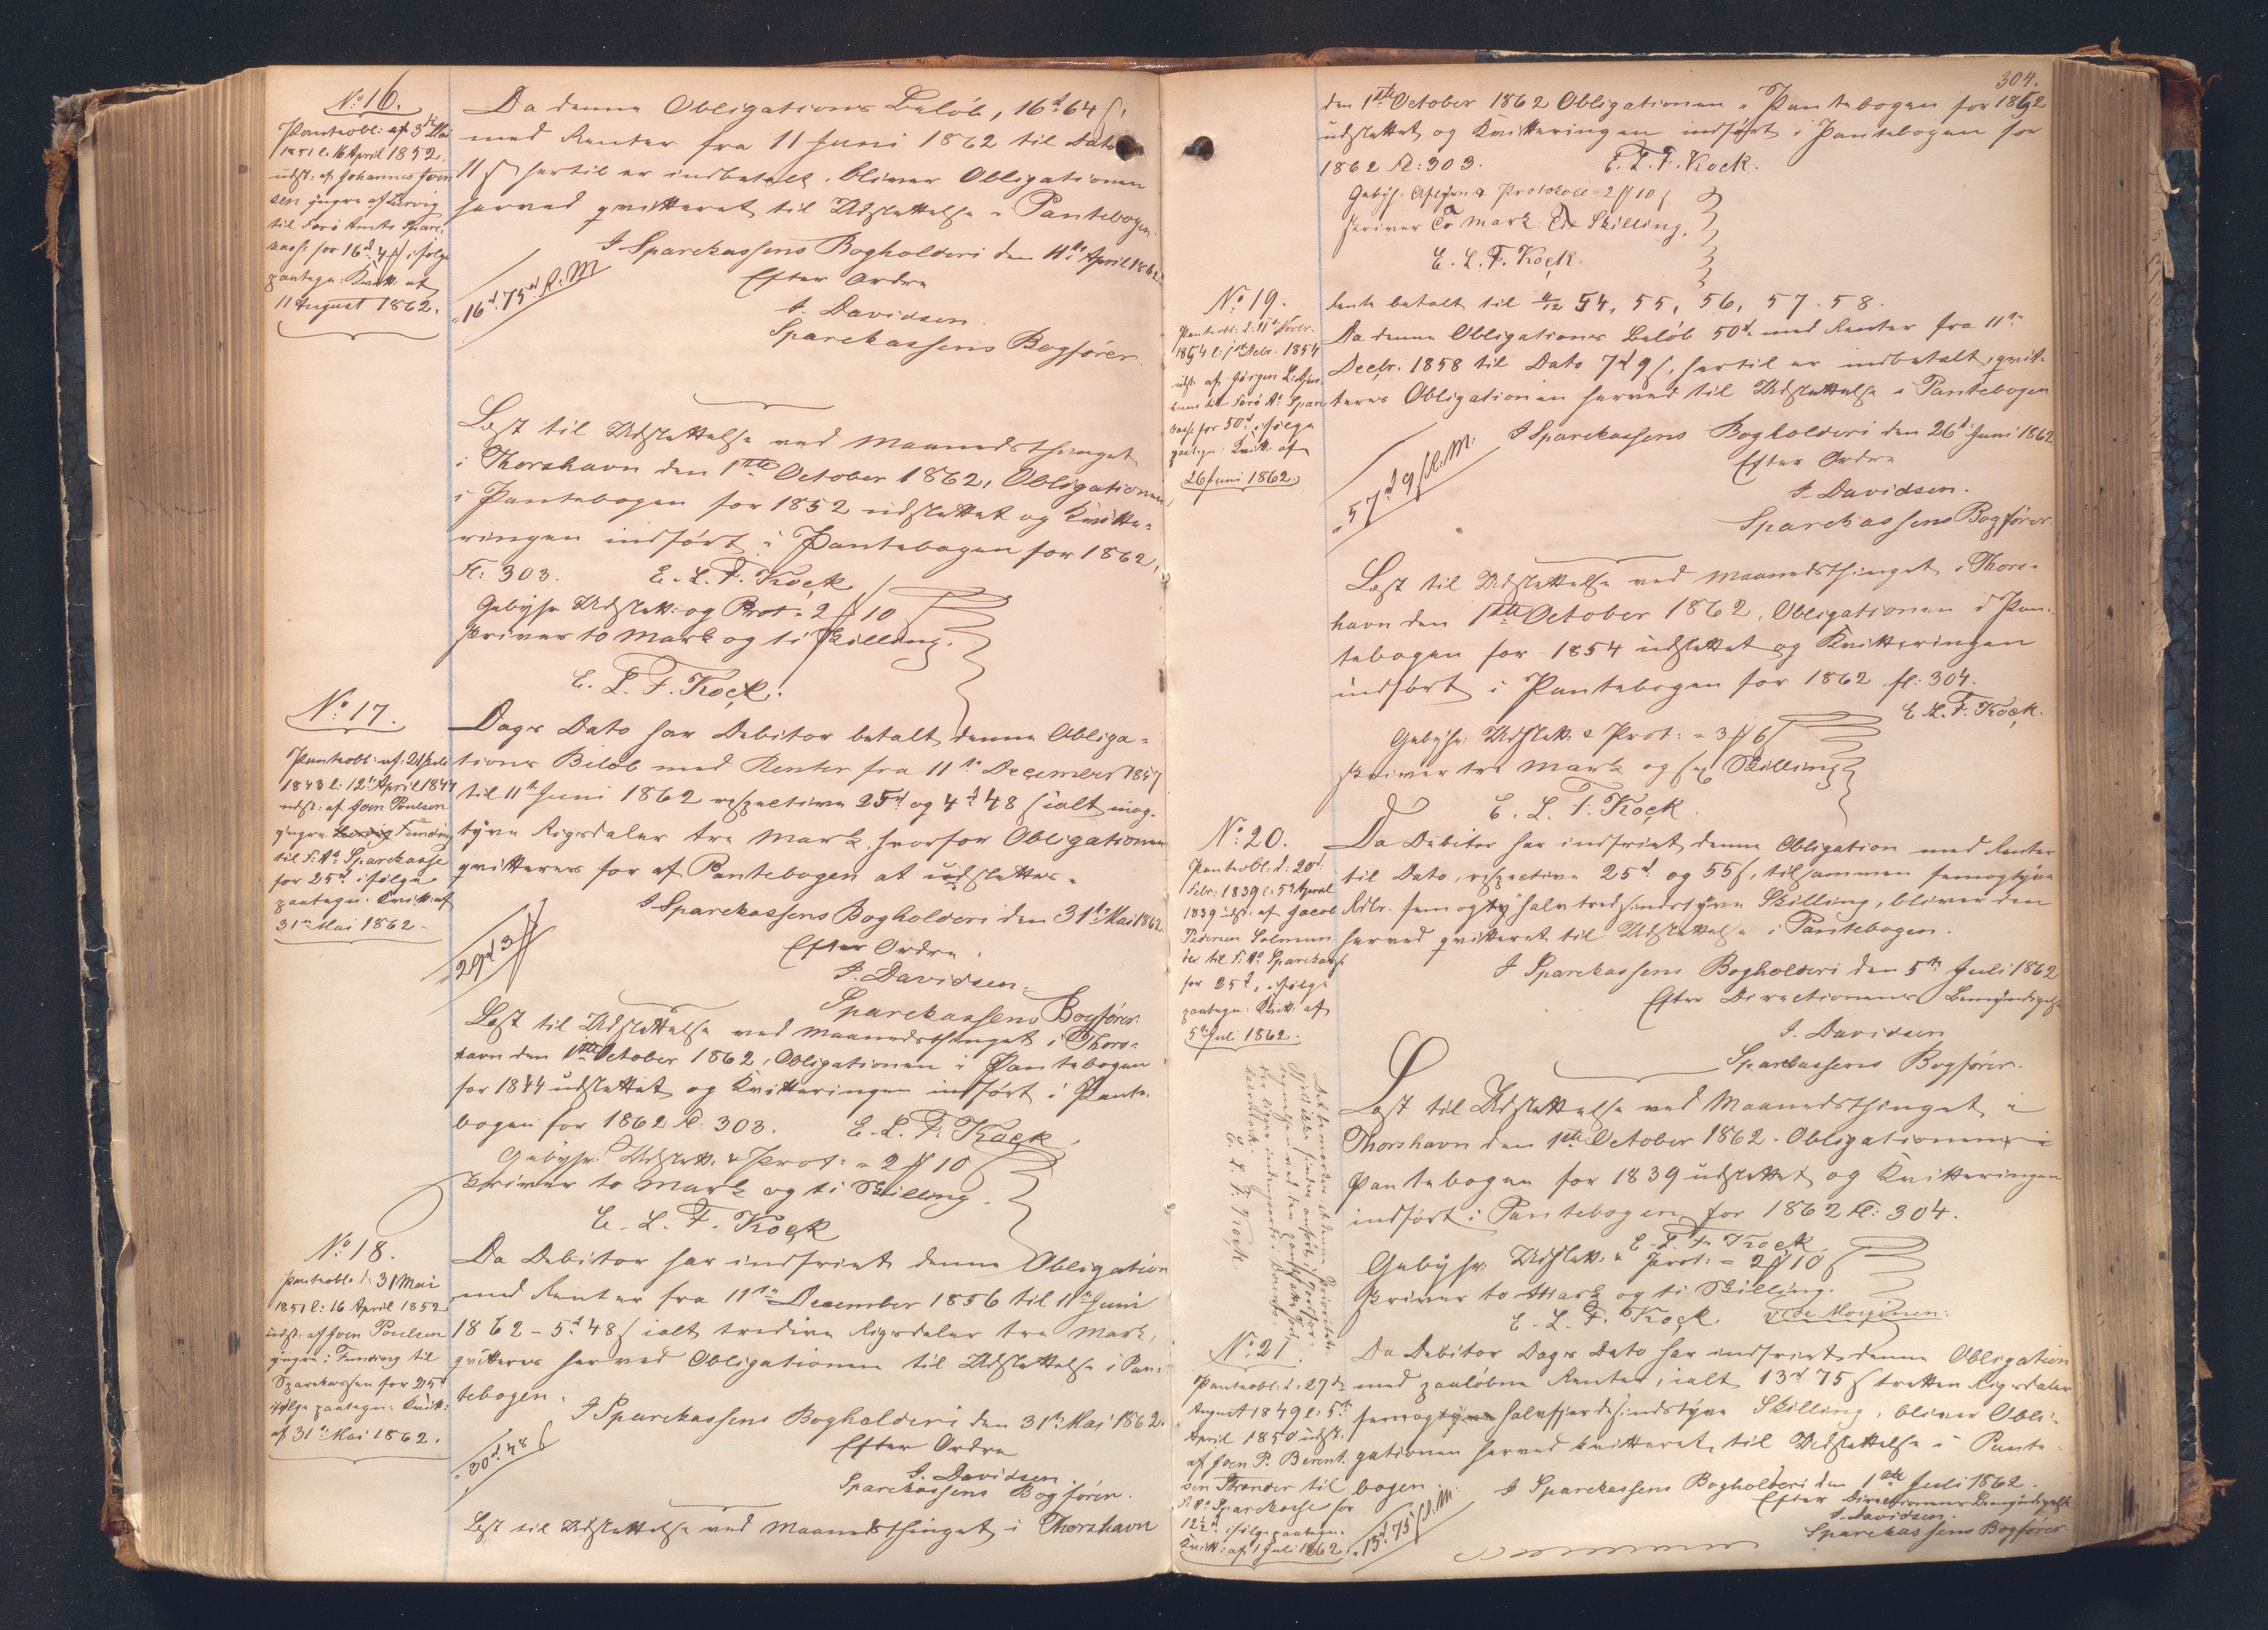 No: 16.
Panteobl: af 3die Mai
1851 l: 16 April 1852,
udst: af Johannes Joen
sen yngre af Lervig
til Færø Amts Spare-
kasse for 16d 4 ß ifølge
paategn: Kvitt: af
11 August 1862.
Da denne Obligations Beløb, 16d 64 ß,
med Renter fra 11 Juni 1862 til Dato
11 ß hertil er indbetalt, bliver Obligationen
herved qvitteret til Udslettelse i Pantebogen.
I Sparekassens Bogholderi den 11te April 1862
Efter Ordre
J. Davidsen.
Sparekassens Bogfører.
16d. 75 ß R:M
Læst til Udslettelse ved Maanedsthinget
i Thorshavn den 1ste October 1862, Obligationen
i Pantebogen for 1852 udslettet og Kvitte-
ringen indført i Pantebogen for 1862,
fl: 303. E. L. F. Kock
Gebyhr Udslett: og Prot = 2 ℳ 10 ß
skriver to Mark og ti Skilling.
E. L. F. Kock.
No: 17.
Panteobl: af 21 Juli
1843 l: 12te April 1844
udst: af Joen Poulsen
yngre Funding
til F: As Sparekasse
for 25d ifølge
paategn. Kvitt: af
31te Mai 1862.
Dags Dato har Debitor betalt denne Obliga-
tions Beløb med Renter fra 11te December 1857
til 11te Juni 1862 respective 25d og 4d 48 ß ialt niog-
tyve Rigsdaler tre Mark, hvorfor Obligationen
qvitteres for af Pantebogen at udslettes.
I Sparekassens Bogholderi den 31te Mai 1862
Efter Ordre
J. Davidsen.
Sparekassens Bogfører.
29d 3 ℳ
Læst til Udslettelse ved Maanedsthinget i Thors-
havn den 1ste October 1862, Obligationen i Pantebogen
for 1844 udslettet og Kvitteringen indført i Pante-
bogen for 1862 fl: 303. E. L. F. Kock
Gebyhr Udslett: & Prot: = 2 ℳ 10 ß
skriver to Mark og ti Skilling.
E. L. F. Kock
No: 18.
Panteobl: d: 31 Mai
1851 l: 16 April 1852
udst: af Joen Poulsen
yngre i Funding til
Sparekassen for 25d
ifølge paategn: Kvitt:
af 31te Mai 1862.
Da Debitor har indfriet denne Obligation
med Renter fra 11te December 1856 til 11te Juni
1862 - 5d 48 ß ialt tredive Rigsdaler tre Mark,
qvitteres herved Obligationen til Udslettelse i Pan-
tebogen.
I Sparekassens Bogholderi den 31te Mai 1862.
Efter Ordre
J. Davidsen.
Sparekassens Bogfører.
30d. 48 ß
Læst til Udslettelse ved Maanedsthinget i Thorshavn
304.
den 1ste October 1862 Obligationen i Pantebogen for 1852
udslettet og Kvitteringen indført i Pantebogen for
1862 fl: 303. E. L. F. Kock.
Gebyhr. & Protokoll = 2 ℳ 10 ß
skriver To Mark Skilling.
E. L. F. Kock.
No: 19.
Panteobl: d: 11te Novbr.
1854 l: 1ste Debr. 1854
udst: af Jørgen
til Færø As Spare-
kasse for 50d ifølge
paategn: Kvitt: af
26 Juni 1862.
Rente betalt til 11/12 54, 55, 56, 57. 58.
Da denne Obligations Beløb 50d med Renter fra 11te
Decbr. 1858 til Dato 7d 9 ß, hertil er indbetalt, qvit-
teres Obligationen herved til Udslettelse i Pantebogen
I Sparekassens Bogholderi den 26de Juni 1862
Efter Ordre
J. Davidsen.
Sparekassens Bogfører
57d 9 ß R:M.
Læst til Udslettelse ved Maanedsthinget i Thors-
havn den 1ste October 1862, Obligationen i Pan-
tebogen for 1854 udslettet og Kvitteringen
indført i Pantebogen for 1862 fl: 304.
E. L. F. Kock.
Gebyhr: Udslett: & Prot: = 3 ℳ 6 ß
skriver tre Mark og sex Skilling.
E. L. F. Kock.
No: 20.
Panteobl: d: 20d.
Febr: 1839 l: 5te April
1839 udst: af Jacob
Pedersen Selmun-
der til F: As Sparekasse
for 25d, ifølge
paategn: Kvitt: af
5te Juli 1862.
Da Debitor har indfriet denne Obligation med Renter
til Dato, respective 25d og 55 ß, tilsammen femogtyve
Rdlr. femog halvtredsindstyve Skilling, bliver den
herved qvitteret til Udslettelse i Pantebogen.
I Sparekassens Bogholderi den 5te Juli 1862
Efter Directionens Bemyndigelse
J. Davidsen
Sparekassens Bogfører.
Læst til Udslettelse ved Maanedsthinget i
Thorshavn den 1ste October 1862. Obligationen i
Pantebogen for 1839 udslettet og Kvitteringen
indført i Pantebogen for 1862 fl: 304.
E. L. F. Kock
Gebyhr. Udslett: & Prot: = 2 ℳ 10 ß
skriver to Mark og ti Skilling.
E. L. F. Kock. vide Marginen:
Det bemærkes at denne Prioritets
E. L. F. Kock
No: 21.
Panteobl: d: 27de
August 1849 l: 5te
April 1850 udst:
af Joen P. Berent-
sen Strænder til
F: As Sparekasse for
12½d ifølge paategn:
Kvitt: af 1 Juli 1862.
Da Debitor Dags Dato har indfriet denne Obligation
med paaløbne Renter, ialt 13d 75 ß tretten Rigsdaler
femog halvfjerdsindstyve Skilling, bliver Obli-
gationen herved kvitteret til Udslettelse i Pante-
bogen.
I Sparekassens Bogholderi den 1ste Juli 1862.
Efter Directionens Bemyndigelse
J. Davidsen.
Sparekassens Bogfører
13d 75 ß R:M.